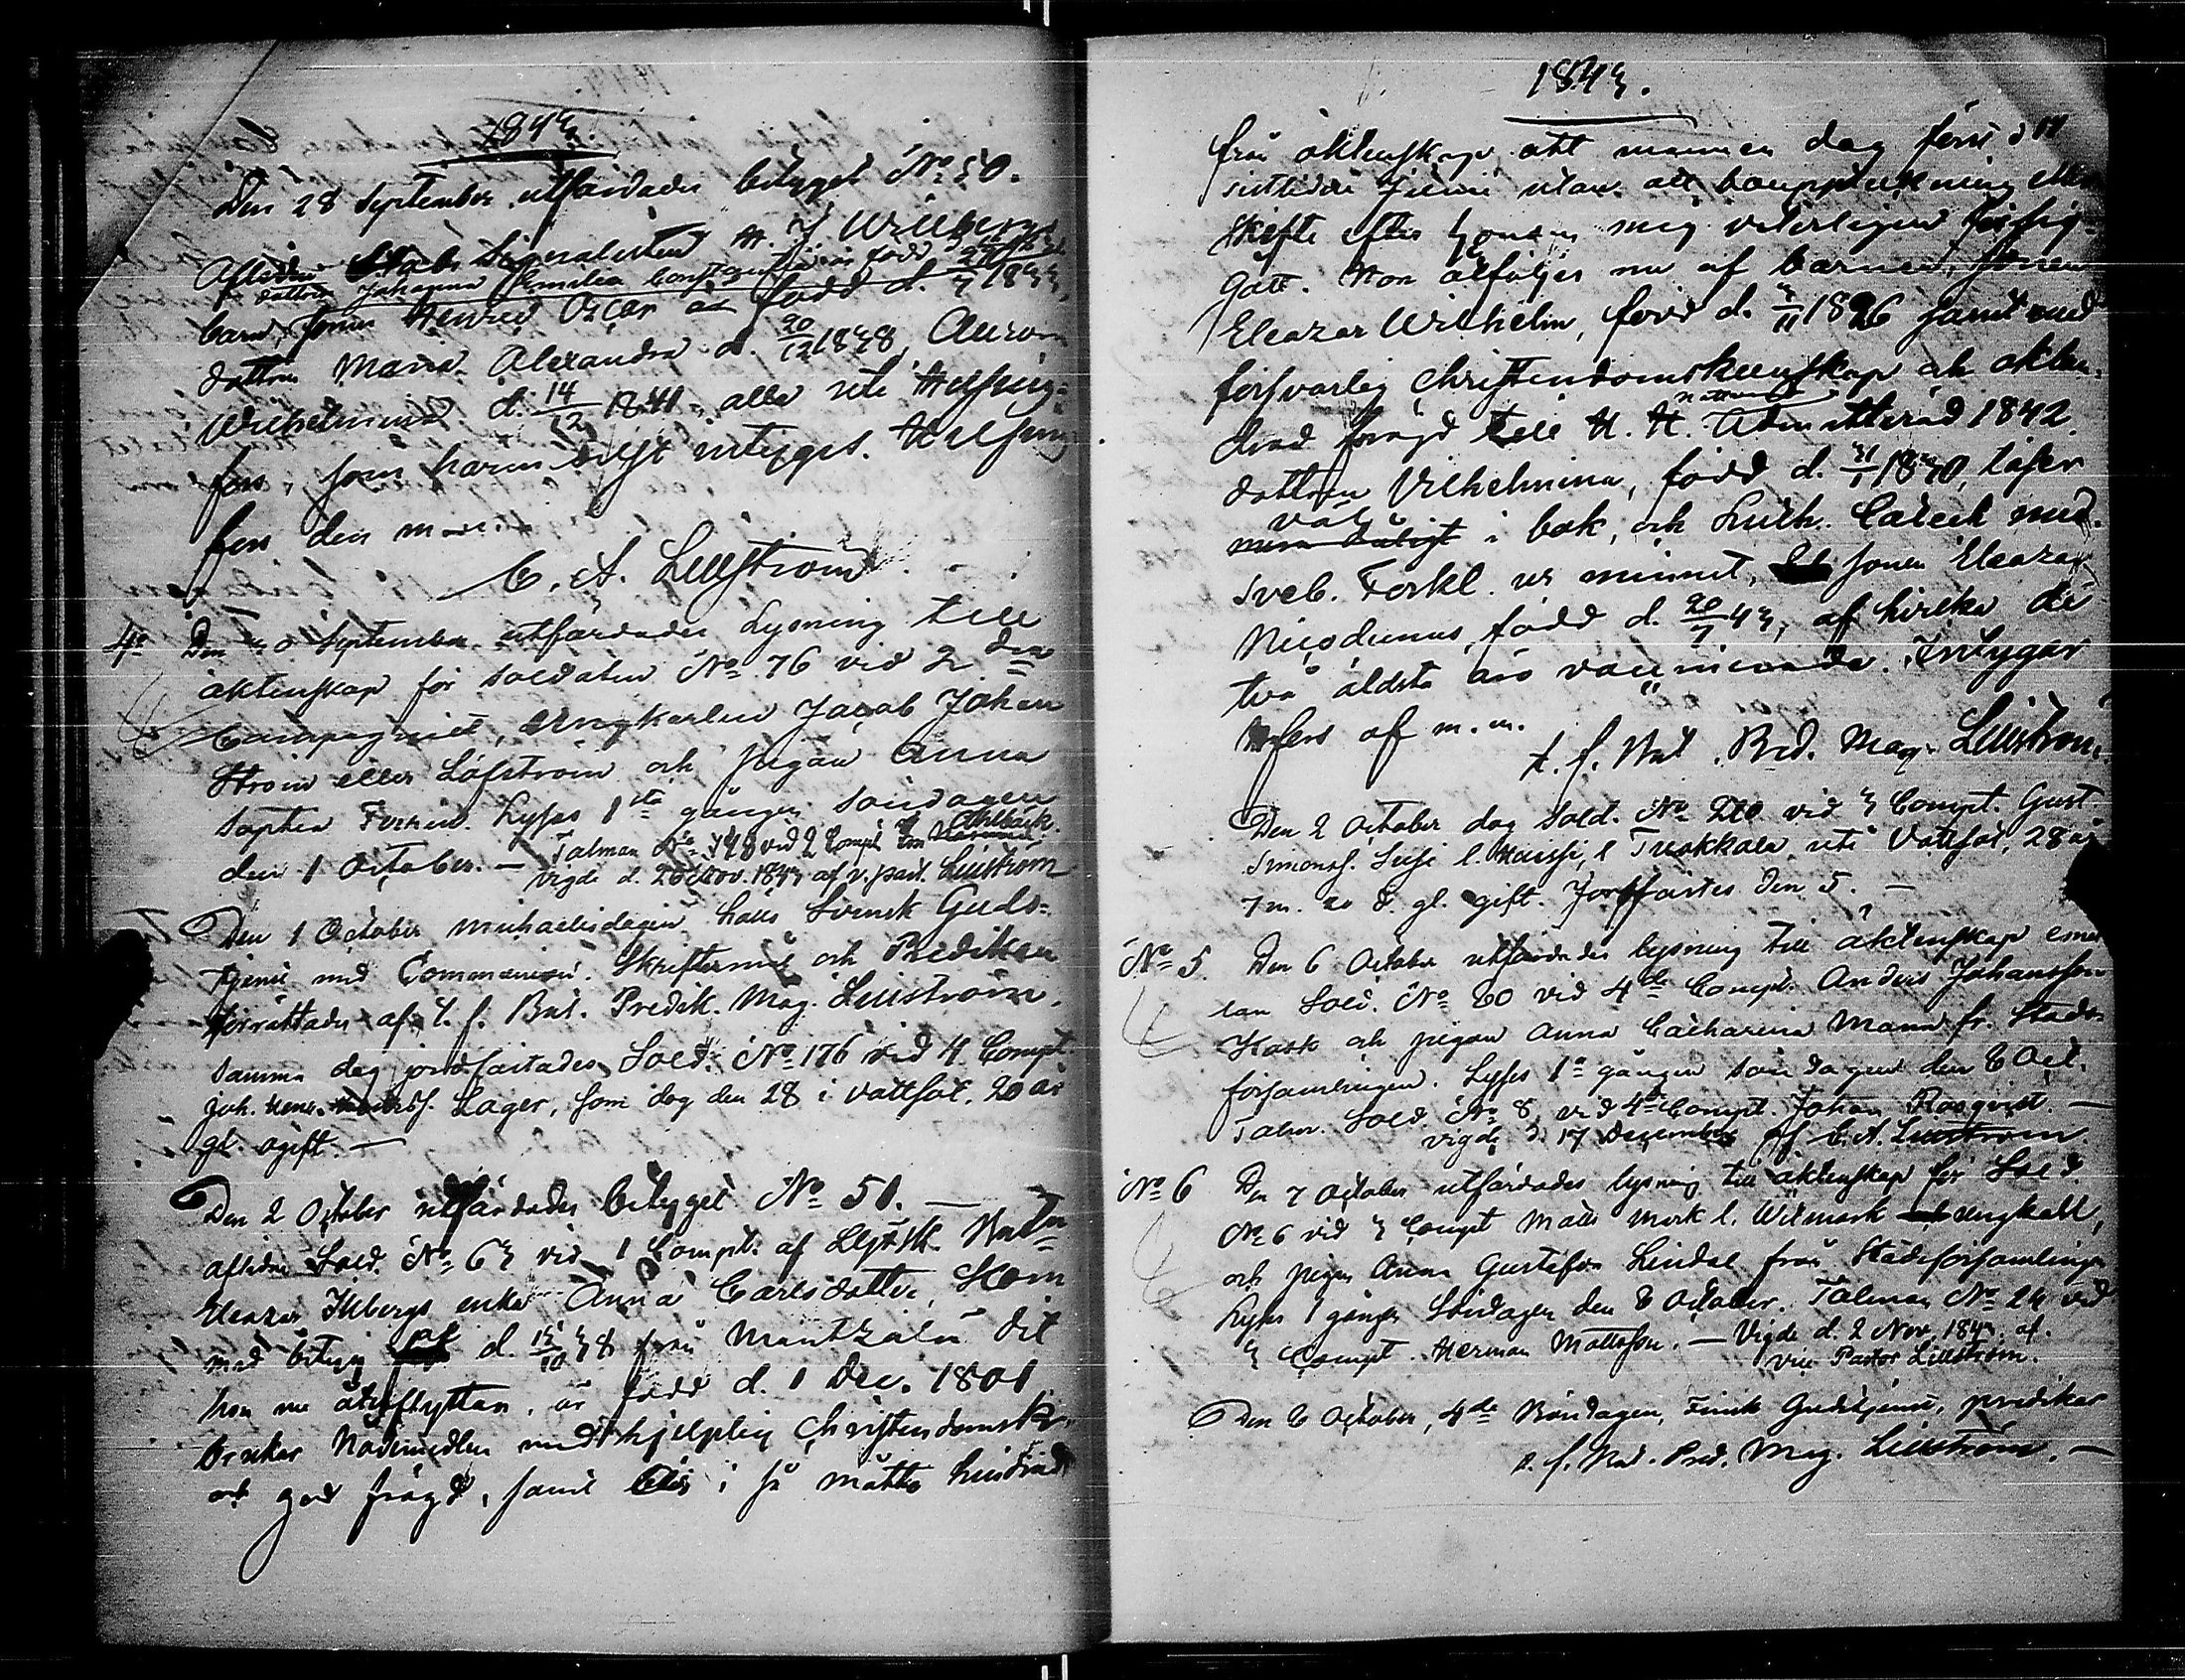 1843.
Den 28 September utfärdades betyget No 50.
Aflidne Stabs Signalisten H. J. Willbergs
dottren Johanna Emilia
barn, sonen Henred Oscar är född d.
dottren Maria Alexandra d. 20/12 1838, Aurora
Wilhelmina d. 14/12 1841, alla uti Helsing-
fors, som härmedelst intygas. Helsing-
fors den m
C. A. Lillström
4o Den 30 September utfärdades Lysning till
äktenskap för soldaten No 76 vid 2dra
Compagniet, Ungkarlen Jacob Johan
Ström eller Löfström och Pigan Anna
Sophia Lyses 1sta gången Söndagen
den 1 October. — Talman No 148 vid 2 Comp. Ahlbäck.
Vigde d. Nov. 1843 af v. past. Lillström
Den 1 October Michaelisdagen hölls Svensk Guds-
tjenst med Communion. Skriftermål och Predikan
förrättades af t. f. Bat. Predik. Mag. Lillström.
Samma dag jordfästades Sold. No 176 vid 4 Compt.
Joh. Henr. Lager, som dog den 28 i vattsot, 20 år
gl. ogift. —
Den 2 October utfärdades betyget No 51. —
aflidne Sold. No 63 vid 1 Compt. af
Eleazar Illbergs enka Anna Carlsdotter, Kom
med betyg d. 13/10 38 från Mäntzälä dit
hon nu återflyttar, är född d. 1 Dec. 1801
brukar Nådemedlen med hjelplig Christendomsk.
och god frägd, samt i så måtto hindrad
1843.
från äktenskap att mannen dog först d 17
sistledne Junii utan att bouppteckning eller
skifte efter honom mig veterligen försig-
gått. Hon åtföljes nu af barnen, sonen
Eleazar Wilhelm, född d. 3/11 1826 samt med
försvarlig Christendomskunskap och okland-
drad frägd till H. H. Nattvard Admitterad 1842.
dottren Vilhelmina, född d. 31/1 1830, läser
väl
i bok, och Luth. Catech med
Sveb. Förkl. ur minnet, sonen Eleazar
Nicodemus, född d. 20/7 43, af hvilka de
två äldsta äro vaccinerade. Intygar
Hfors af m. m.
t. f. Bat. Pred. Mag. Lillström.
Den 2 October dog Sold. No 210 vid 3 Compt. Gust.
Simonss. l. l. uti Vattsot, 28 år
7 m. 20 d. gl. gift. Jordfästes den 5. —
No 5. Den 6 October utfärdades lysning till äktenskap emel-
lan Sold. No 80 vid 4de Compt. Anders Johansson
Hask och pigan Anna Catharina Mannd fr. Stads-
församlingen. Lyses 1a gången söndagen den 8 Oct.
Talm. Sold. No 8 vid 4de Compt. Johan Rosqvist. —
Vigde d. 17 December af C. A. Lillström.
No 6 Den 7 October utfärdades lysning till äktenskap för Sold.
No 6 vid 3 Compt Matts Mark l. Wikmark ungkarl,
och pigan Anna Gustafva Lindal från Stadsförsamlingen
Lyses 1 gången Söndagen den 8 October. Talman No 24 vid
3 Compt. Herman Mattsson. — Vigde d. 2 Nov. 1843 af.
vice Pastor Lillström.
Den 8 October, 4de Böndagen, Finsk Gudstjenst, predikar
t. f. Bat. Pred. Mag. Lillström. —